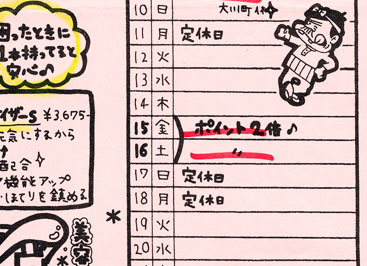 困ったときに
1本持ってると
安心♪
イザーS ¥3,675-
元気にするから
配合
機能アップ
ほてりを鎮める
美容
10 日 大川町
11 月 定休日
12 火
13 水
14 木
15 金 ポイント2倍♪
16 土 〃
17 日 定休日
18 月 定休日
19 火
20 水